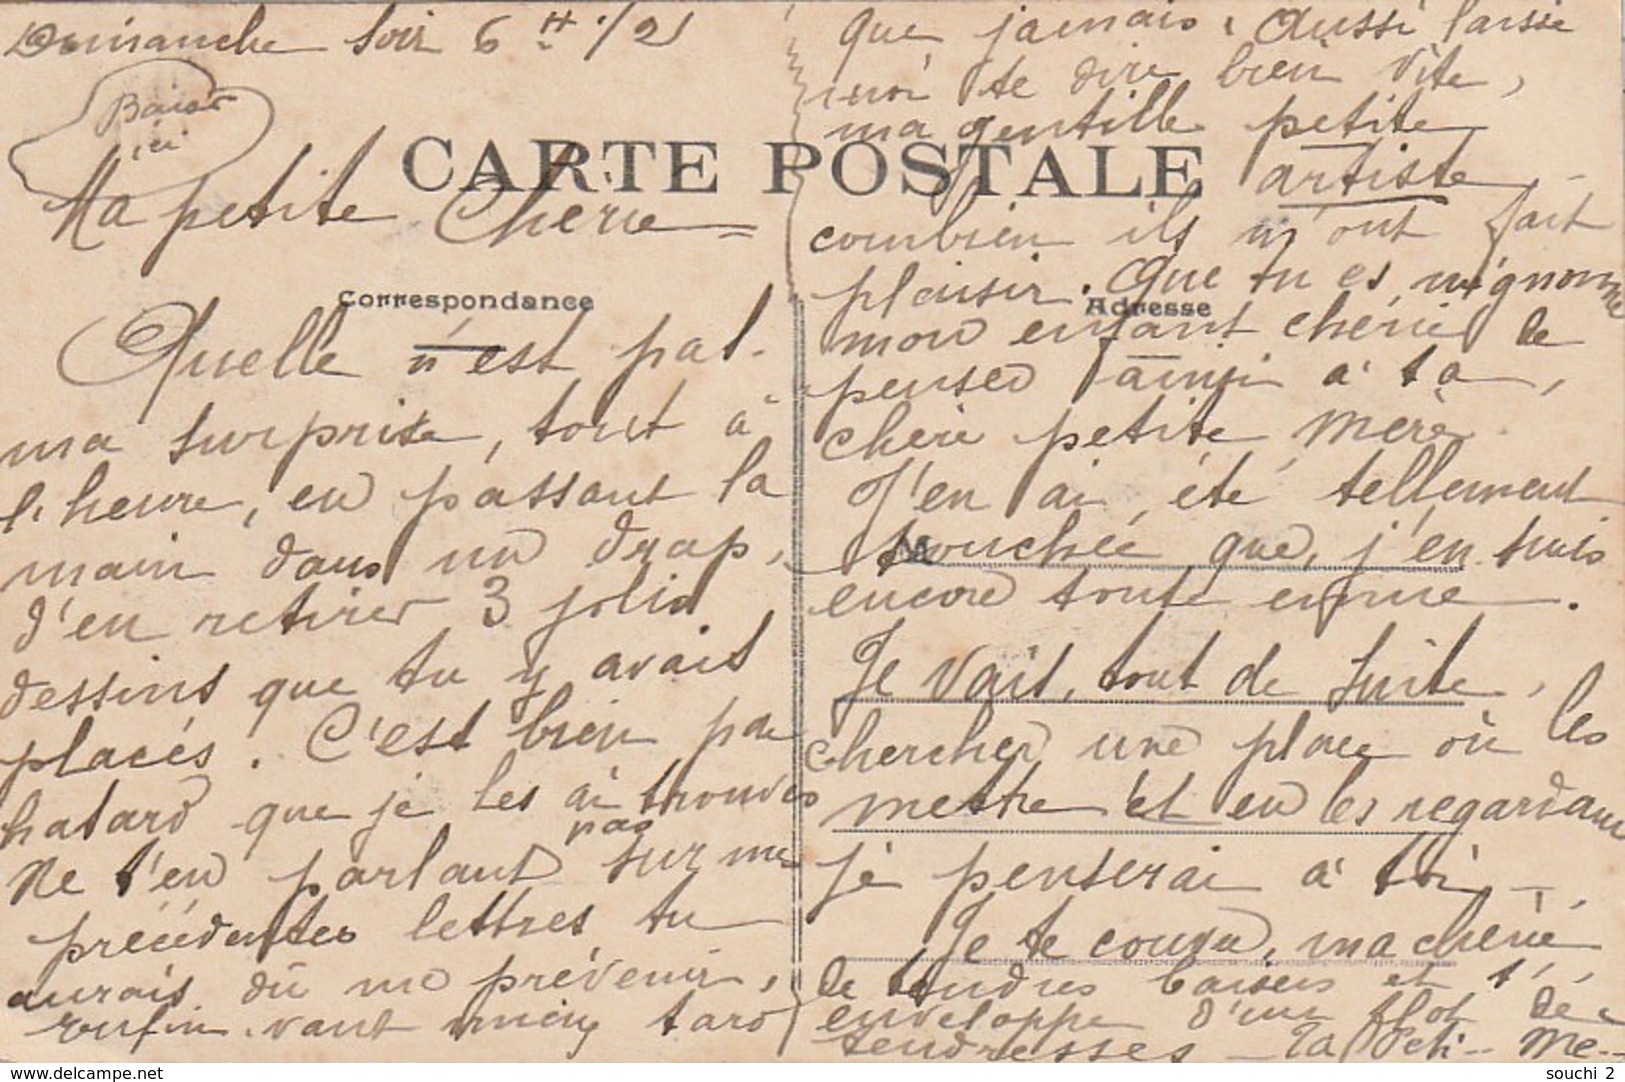 Dimanche soir 6 H. 1/2
Baiser
ici
CARTE POSTALE
Ma petite Chérie
Correspondance
Quelle n'est pas
ma surprise, tout à
l'heure, en passant la
main dans un drap,
d'en retirer 3 jolis
dessins que tu y avais
placés. C'est bien par
hasard que je les ai trouvés
Ne t'en parlant pas sur mes
précédentes lettres tu
aurais dû me prévenir,
Enfin vaut mieux tard
que jamais. Aussi laisse
moi te dire bien vite,
ma gentille petite
artiste
combien ils m'ont fait
plaisir. Que tu es mignonne
Adresse
mon enfant chérie de
penser ainsi à ta
chère petite mère.
J'en ai été tellement
M
touchée que, j'en suis
encore toute émue.
Je vais, tout de suite,
chercher une place où les
mettre et en les regardant
je penserai à toi
Je te couvre, ma chérie
de tendres baisers et t'
enveloppe d'un flot de
tendresses - Ta Peti.. Mè..
delcampe.net
souchi_2